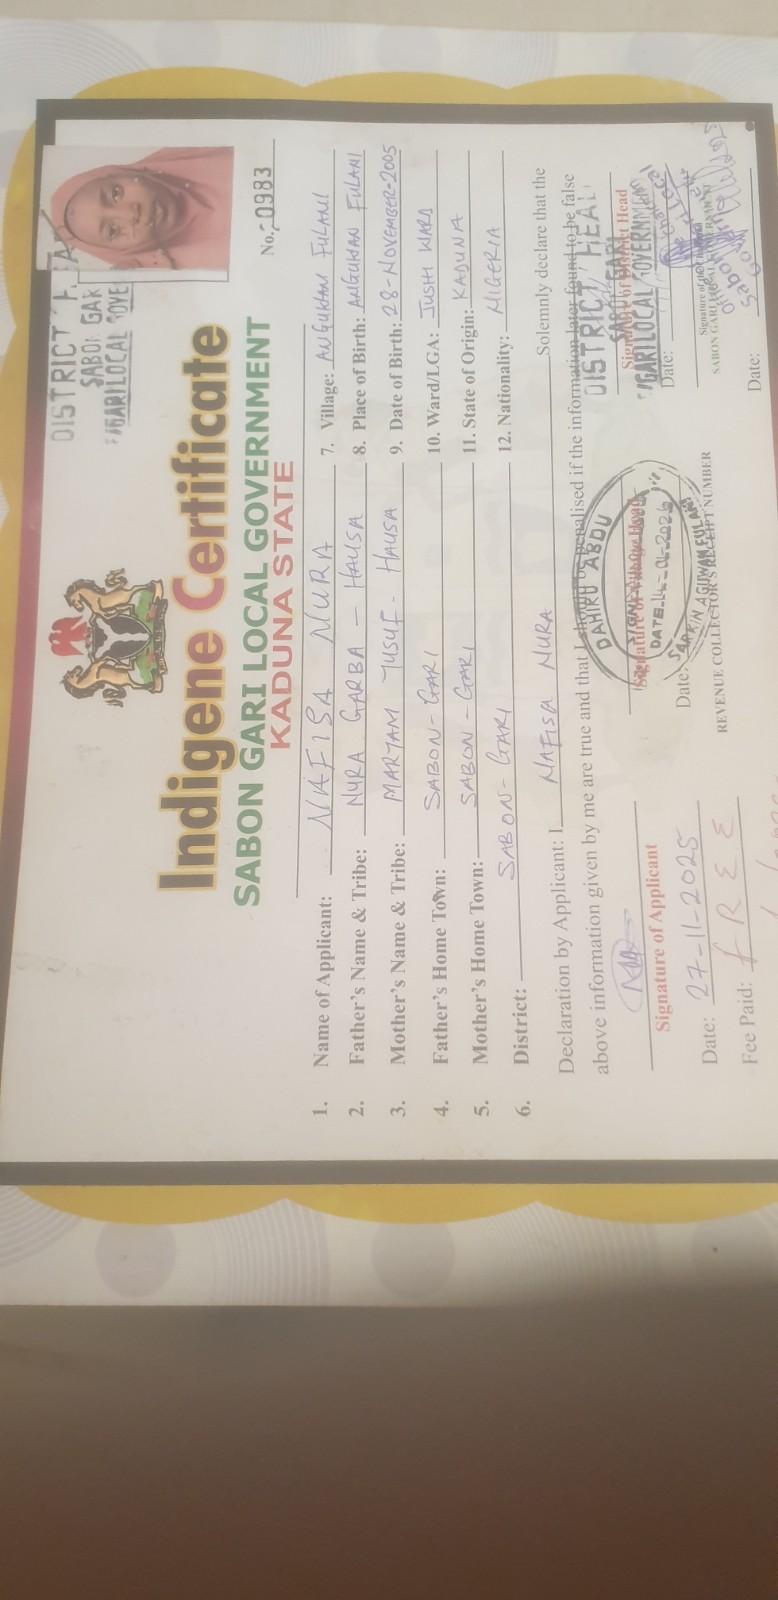 DISTRICT HEA
SABO GAR
GARI LOCAL GOVE
No. 0983
Indigene Certificate
SABON GARI LOCAL GOVERNMENT
KADUNA STATE
1. Name of Applicant: NAFISA NURA
7. Village: ANGUWAN FULANI
2. Father's Name & Tribe: NURA GARBA - HAUSA
8. Place of Birth: ANGUWAN FULANI
3. Mother's Name & Tribe: MARYAM YUSUF - HAUSA
9. Date of Birth: 28-NOVEMBER-2005
4. Father's Home Town: SABON-GARI
10. Ward/LGA: JUSHI WARD
5. Mother's Home Town: SABON-GARI
11. State of Origin: KADUNA
6. District: SABON-GARI
12. Nationality: NIGERIA
Declaration by Applicant: I NAFISA NURA Solemnly declare that the
above information given by me are true and that I should be penalised if the information later found to be false
DAHIRU ABDU
DISTRICT HEAD
SABON GARI
GARI LOCAL GOVERNMENT
Signature of Applicant
Signature of Village Head
Signature of District Head
DATE 14-01-2026
SARKIN AGUWAN FULANI
Date: 27-11-2025
Date:
Date:
SABON GARI LOCAL GOVERNMENT
Fee Paid: FREE
REVENUE COLLECTOR'S RECEIPT NUMBER
Date: